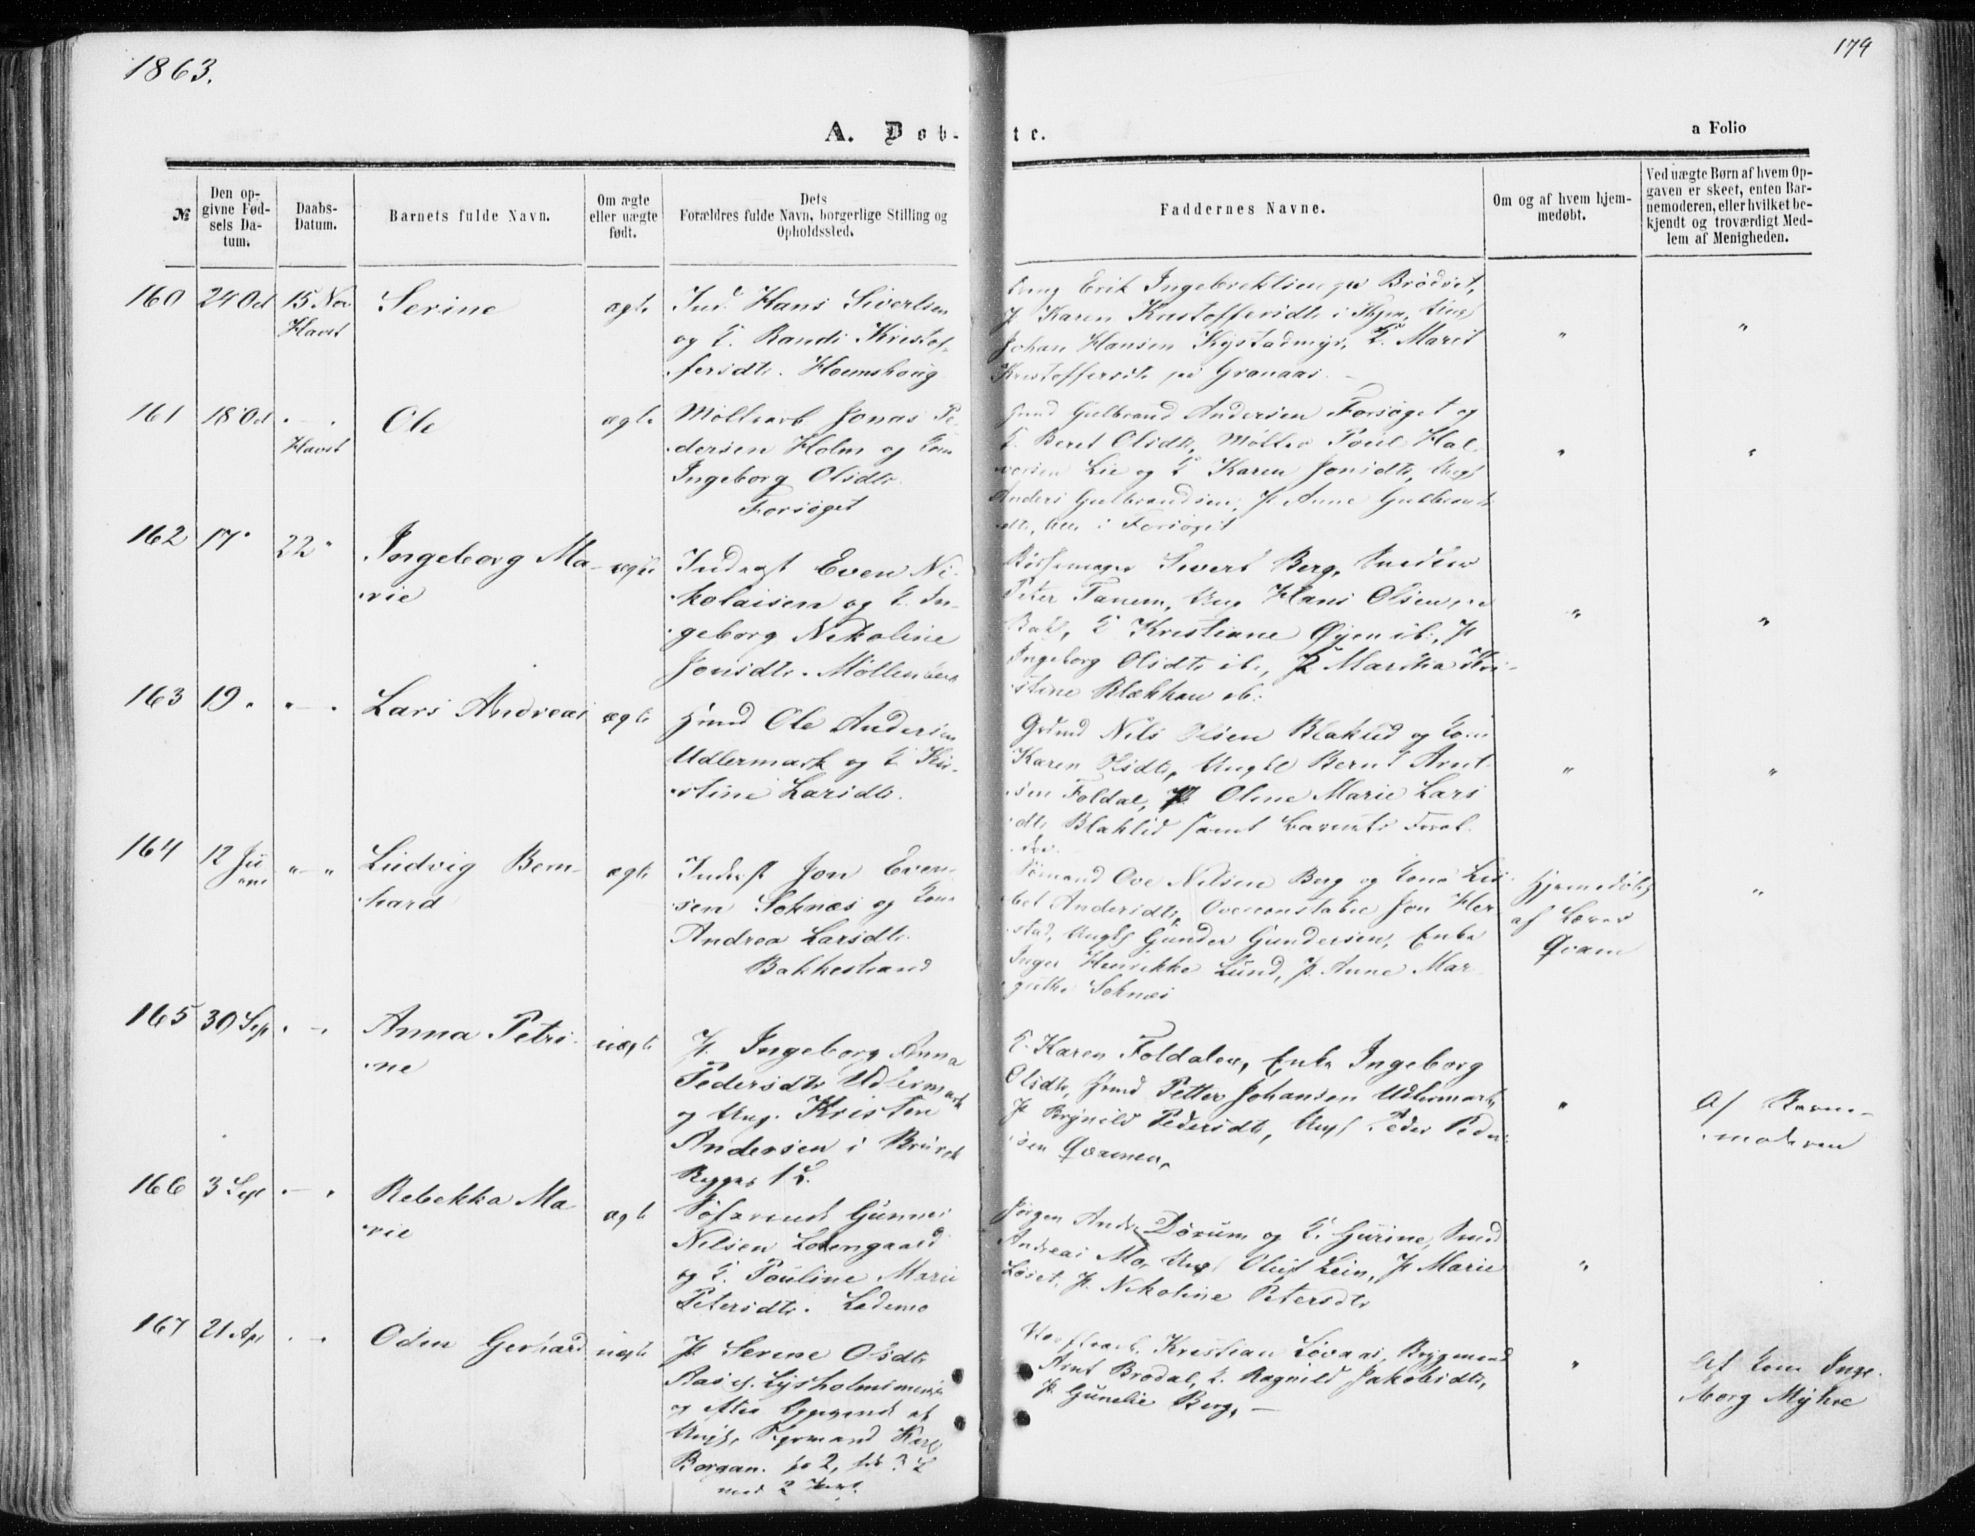 1863.
179
A. Døb-
te.
a Folio
№
Den op-
givne Fød-
sels Da-
tum.
Daabs-
Datum.
Barnets fulde Navn.
Om ægte
eller uægte
født.
Dets
Forældres fulde Navn, borgerlige Stilling og
Opholdssted.
Faddernes Navne.
Om og af hvem hjem-
medøbt.
Ved uægte Børn af hvem Op-
gaven er skeet, enten Bar-
nemoderen, eller hvilket be-
kjendt og troværdigt Med-
lem af Menigheden.
160 24 Oct 15 Nov
Havst
Serine
ægte
Ind. Hans Sivertsen
og K. Randi Kristof-
fersdtr. Hoemshoug
Ung Erik Ingebrektsen på Brødset,
P. Karen Kristoffersdtr i
Johan Hansen Kystadmyr, K. Marit
Kristoffersdtr på Granaas.
161 18 Oct
Havst
Ole
ægte
Møllearb Jonas Pe-
dersen Holm og Kone
Ingeborg Olsdtr.
Forsøget
Gulbrand Andersen Forsøget og
K. Beret Olsdtr, Møller Poul Hal-
vorsen Lie og K Karen Jonsdtr, Ungk
Anders Gulbrandsen, P. Anne Gulbrands
dtr, alle i Forsøget
162 17 22
Ingeborg Ma-
rie
ægte
Inderst Even Ni-
kolaisen og K. In-
geborg Nikoline
Jonsdtr. Møllenberg
Bøssemager Sivert Berg, Snedker
Peter Tanem, Ung Hans Olsen
Bakl, K Kristiane Øyen ib., P
Ingeborg Olsdtr ib., P Martha Kri-
stine Blækkan ib.
163 19
Lars Andreas
ægte
Ole Andersen
Udlermark og K. Kir-
stine Larsdtr.
Grdmd Nils Olsen Blaklid og Kone
Karen Olsdtr, Ungkl Bernt Arnt-
sen Foldal, P. Oline Marie Lars
dtr Blaklid samt Barnets Foræl-
dre.
164 12 Ju
ni
Ludvig Bern-
hard
ægte
Inderst Jon Even-
sen Soknæs og Kone
Andrea Larsdtr.
Bakkestrand
Sømand Ove Nilsen Berg og Kone Lis-
bet Andersdtr, Overconstabel Jon Her-
stad, Ungk Gunder Gundersen, Enke
Inger Henrikke Lund, P. Anne Mar-
grethe Soknæs
Hjemmedøbt
af Lærer
Qvam
165 30 Sept
Anna Petri-
ne
uægte
P. Ingeborg Anna
Pedersdtr Udlermark
og Ung. Kristen
Andersen i Bruræk
Bygges 1 L.
K. Karen Foldalen, Enke Ingeborg
Olsdtr, Petter Johansen Udlermark,
P Brynild Pedersdtr, Ungk Peder Peder-
sen Qvammen,
Af Barne-
moderen
166 3 Sept
Rebekka Ma
rie
ægte
Søfarende Gunner
Nilsen Lorengaard
og K. Pauline Marie
Petersdtr. Lademo
Jørgen Andr Dørum og K. Gurine, Smed
Andreas Mo, Ungk Oluf Lein, P. Marie
Løset, P. Nikoline Petersdtr
167 21 Apr
Odin Gerhard
uægte
P. Serine Olsdtr
Aas, Lysholmsminde
og efter Opgivende af
Ungk, Karl
Borgan. for 2,
med 2
Kristian Lovaas, Brygmand
Arnt Brødal, K. Ragnild Jakobsdtr,
P. Gunelie Berg.
Af Kone Inge-
borg Myhre